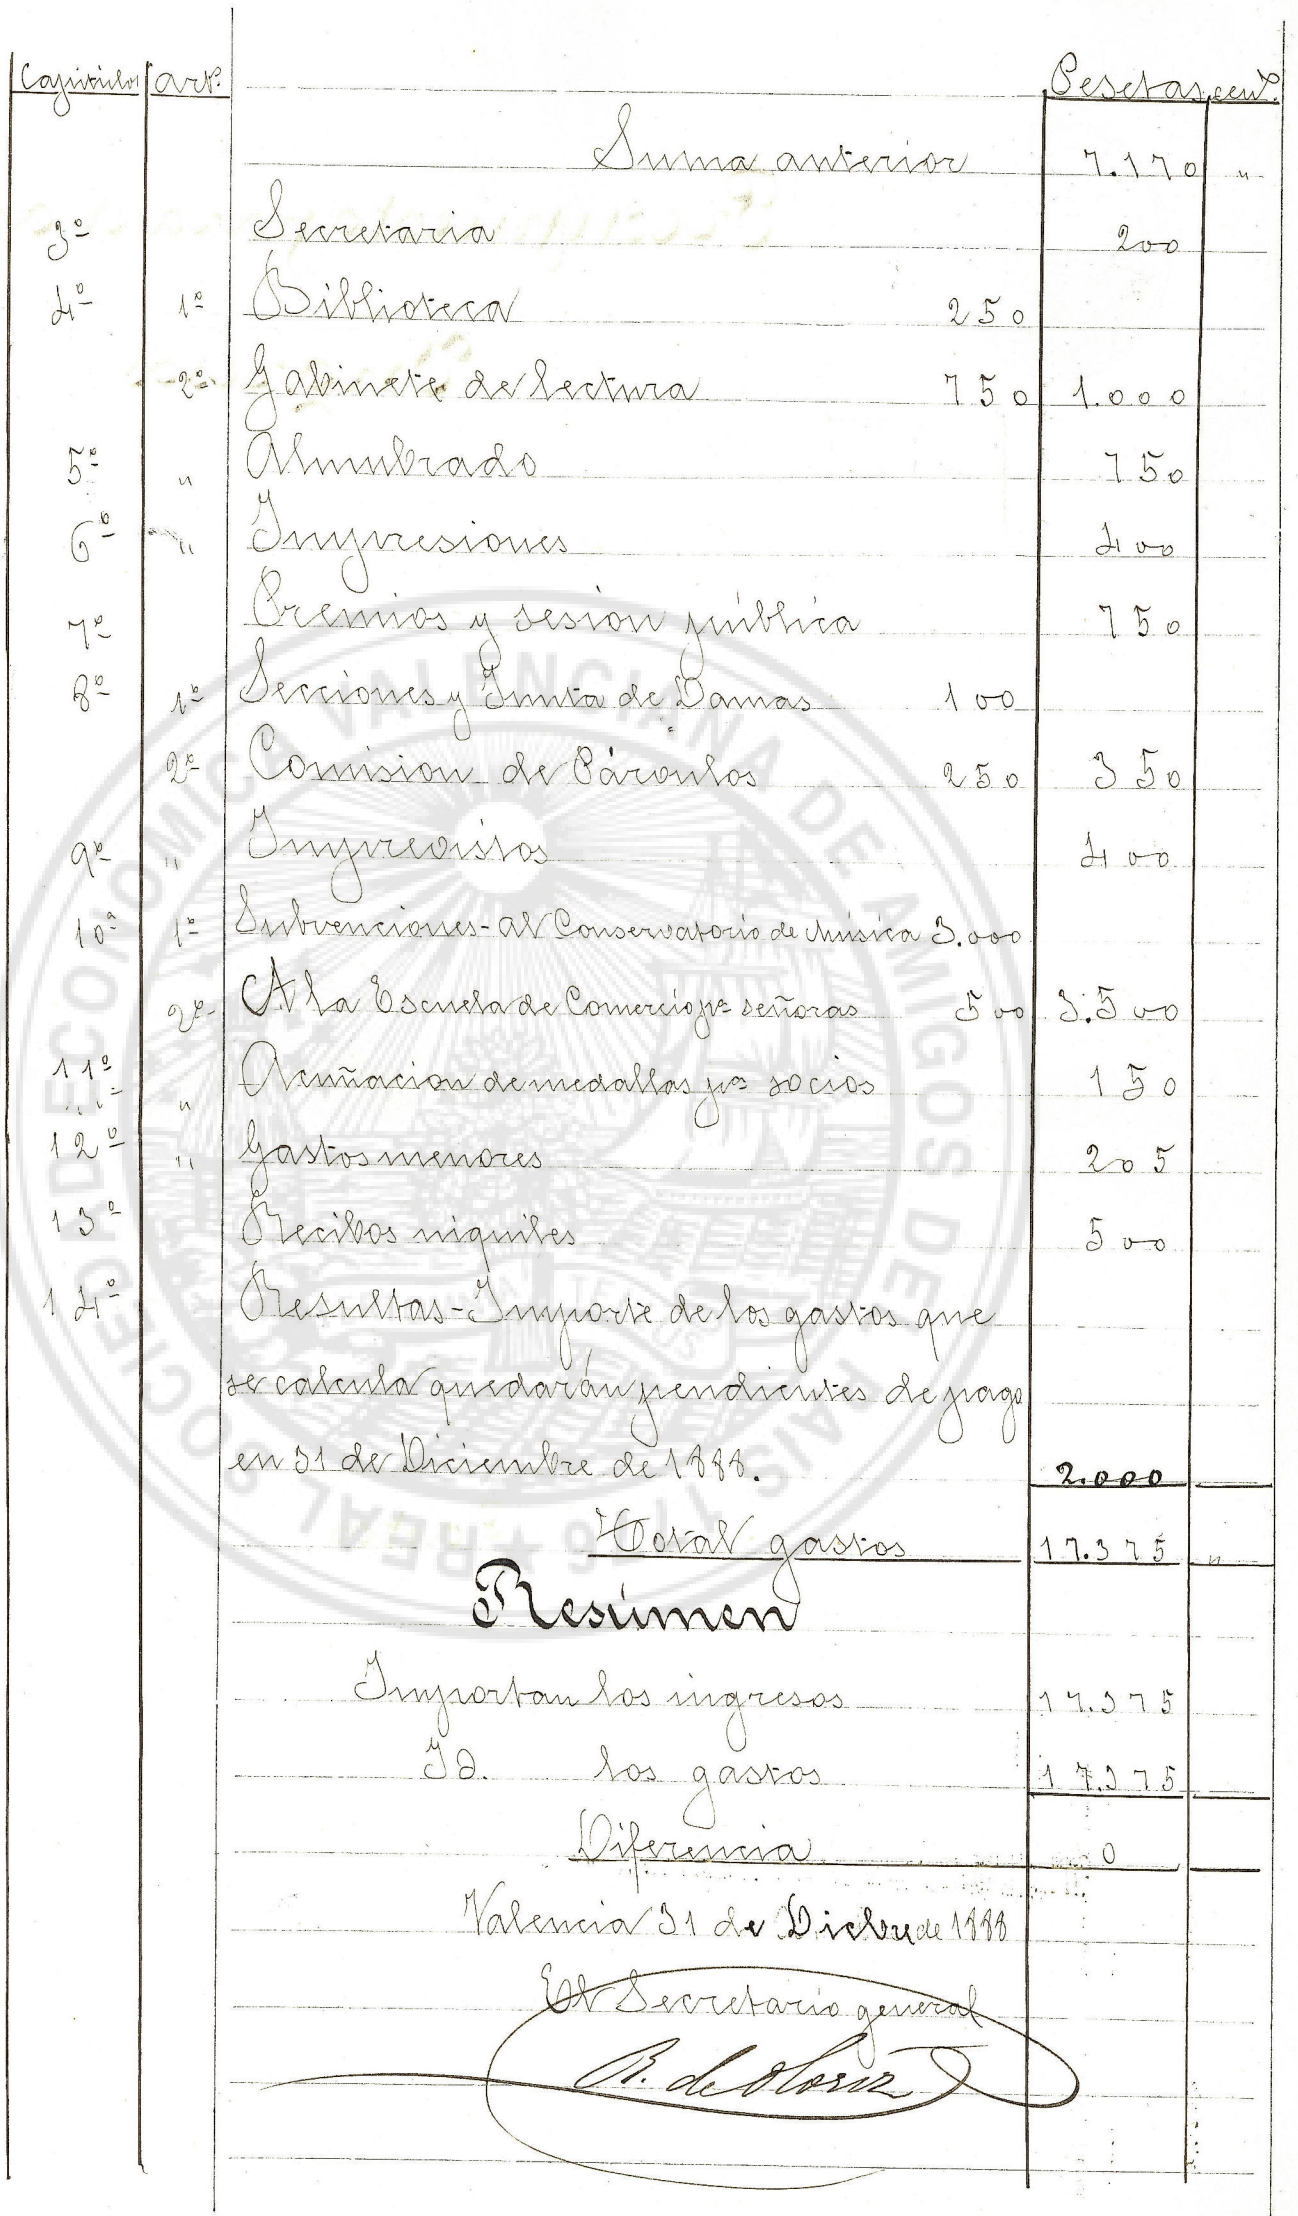 Capitulos Artº Pesetas cents
Suma anterior 7.170 "
3º Secretaria 200
4º 1º Biblioteca 250
2º Gabinete de lectura 750 1.000
5º " Alumbrado 750
6º " Impresiones 400
7º Premios y sesion pública 750
8º 1º Secciones y Junta de Damas 100
2º Comision de Párvulos 250 350
9º " Imprevistos 400
10º 1º Subvenciones - al Conservatorio de Música 3.000
2º A la Escuela de Comercio pª señoras 500 3.500
11º " Acuñacion de medallas pª socios 150
12º " Gastos menores 205
13º Recibos niquiles 500
14º Resultas - Importe de los gastos que
se calcula quedarán pendientes de pago
en 31 de Diciembre de 1888. 2.000
Total gastos 17.375 "
Resúmen
Importan los ingresos 17.375
Id. los gastos 17.375
Diferencia 0
Valencia 31 de Dicbre de 1888
El Secretario general
R. de Oloriz
REAL SOCIEDAD ECONOMICA VALENCIANA DE AMIGOS DEL PAIS 1776